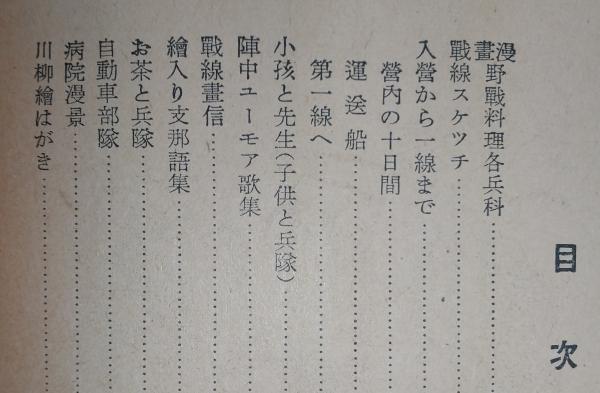 目次
漫畫野戰料理各兵科
戰線スケツチ
入營から一線まで
營內の十日間
運送船
第一線へ
小孩と先生（子供と兵隊）
陣中ユーモア歌集
戰線畫信
繪入り支那語集
お茶と兵隊
自動車部隊
病院漫景
川柳繪はがき